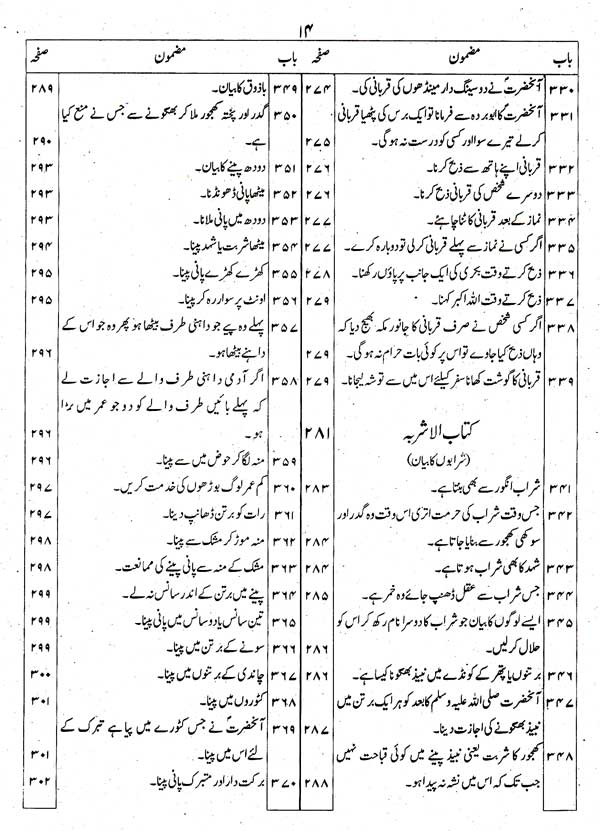 ۱۴
باب مضمون صفحہ
۳۳۰ آنحضرتؐ نے دو سینگ دار مینڈھوں کی قربانی کی۔ ۲۷۴
۳۳۱ آنحضرتؐ کا ابو بردہ سے فرمانا تو ایک برس کی پٹھیا قربانی
کر لے تیرے سوا اور کسی کو درست نہ ہو گی۔ ۲۷۵
۳۳۲ قربانی اپنے ہاتھ سے ذبح کرنا۔ ۲۷۶
۳۳۳ دوسرے شخص کی قربانی ذبح کرنا۔ ۲۷۶
۳۳۴ نماز کے بعد قربانی کاٹنا چاہئے۔ ۲۷۷
۳۳۵ اگر کسی نے نماز سے پہلے قربانی کر لی تو دوبارہ کرے۔ ۲۷۷
۳۳۶ ذبح کرتے وقت بکری کی ایک جانب پر پاؤں رکھنا۔ ۲۷۸
۳۳۷ ذبح کرتے وقت اللہ اکبر کہنا۔ ۲۷۹
۳۳۸ اگر کسی شخص نے صرف قربانی کا جانور مکہ بھیج دیا کہ
وہاں ذبح کیا جاوے تو اس پر کوئی بات حرام نہ ہو گی۔ ۲۷۹
۳۳۹ قربانی کا گوشت کھانا سفر کیلئے اس میں سے توشہ لیجانا۔ ۲۷۹
کتاب الاشربہ ۲۸۱
(شرابوں کا بیان)
۳۴۱ شراب انگور سے بھی بنتا ہے۔ ۲۸۳
۳۴۲ جس وقت شراب کی حرمت اتری اس وقت وہ گدر اور
سوکھی کھجور سے بنایا جاتا ہے۔ ۲۸۴
۳۴۳ شہد کا بھی شراب ہوتا ہے۔ ۲۸۴
۳۴۴ جس شراب سے عقل ڈھپ جائے وہ خمر ہے۔ ۲۸۵
۳۴۵ ایسے لوگوں کا بیان جو شراب کا دوسرا نام رکھ کر اس کو
حلال کر لیں۔ ۲۸۶
۳۴۶ برتنوں یا پتھر کے کونڈے میں نبیذ بھگونا کیسا ہے۔ ۲۸۶
۳۴۷ آنحضرت صلی اللہ علیہ وسلم کا بعد کو ہر ایک برتن میں
نبیذ بھگونے کی اجازت دینا۔ ۲۸۷
۳۴۸ کھجور کا شربت یعنی نبیذ پینے میں کوئی قباحت نہیں
جب تک کہ اس میں نشہ نہ پیدا ہو۔ ۲۸۸
باب مضمون صفحہ
۳۴۹ باذوق کا بیان۔ ۲۸۹
۳۵۰ گدر اور پختہ کھجور ملا کر بھگونے سے جس نے منع کیا
ہے۔ ۲۹۰
۳۵۱ دودھ پینے کا بیان۔ ۲۹۳
۳۵۲ میٹھا پانی ڈھونڈنا۔ ۲۹۳
۳۵۳ دودھ میں پانی ملانا۔ ۲۹۳
۳۵۴ میٹھا شربت یا شہد پینا۔ ۲۹۴
۳۵۵ کھڑے کھڑے پانی پینا۔ ۲۹۵
۳۵۶ اونٹ پر سوار رہ کر پینا۔ ۲۹۵
۳۵۷ پہلے وہ پیے جو داہنی طرف بیٹھا ہو پھر وہ جو اس کے
داہنے بیٹھا ہو۔ ۲۹۶
۳۵۸ اگر آدمی داہنی طرف والے سے اجازت لے
کہ پہلے بائیں طرف والے کو دو جو عمر میں بڑا
ہو۔ ۲۹۶
۳۵۹ منہ لگا کر حوض میں سے پینا۔ ۲۹۶
۳۶۰ کم عمر لوگ بوڑھوں کی خدمت کریں۔ ۲۹۷
۳۶۱ رات کو برتن ڈھانپ دینا۔ ۲۹۷
۳۶۲ منہ موڑ کر مشک سے پینا۔ ۲۹۸
۳۶۳ مشک کے منہ سے پانی پینے کی ممانعت۔ ۲۹۸
۳۶۴ پینے میں برتن کے اندر سانس نہ لے۔ ۲۹۹
۳۶۵ تین سانس یا دو سانس میں پانی پینا۔ ۲۹۹
۳۶۶ سونے کے برتن میں پینا۔ ۲۹۹
۳۶۷ چاندی کے برتنوں میں پینا۔ ۳۰۰
۳۶۸ کٹوروں میں پینا۔ ۳۰۱
۳۶۹ آنحضرتؐ نے جس کٹورے میں پیا ہے تبرک کے
لئے اس میں پینا۔ ۳۰۱
۳۷۰ برکت دار اور متبرک پانی پینا۔ ۳۰۲